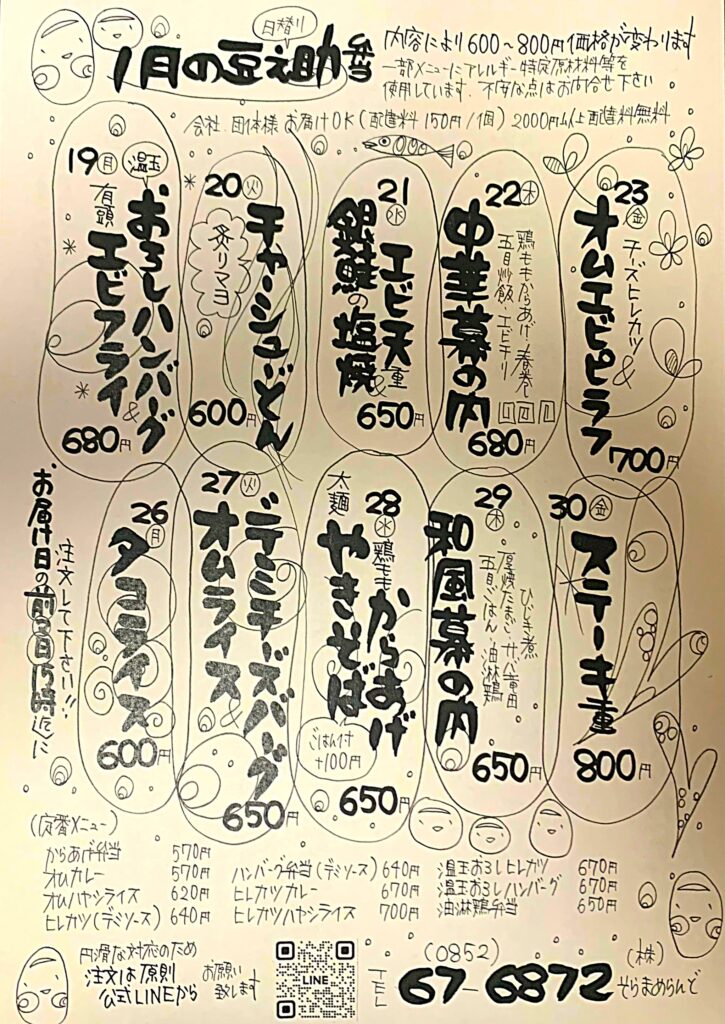 日替り
1月の豆之助弁当
内容により600～800円価格が変わります
一部メニューにアレルギー特定原材料等を
使用しています。不安な点はお問合せ下さい
会社、団体様 お届けOK(配達料150円/1個) 2000円以上配達料無料
19(月)
温玉
おろしハンバーグ&
有頭エビフライ
680円
20(火)
チャーシューどん
炙りマヨ
600円
21(水)
エビ天重&
銀鮭の塩焼
650円
22(木)
鶏ももからあげ・春巻
五目炒飯・エビチリ
中華幕の内
680円
23(金)
チーズヒレカツ&
オムエビピラフ
700円
26(月)
タコライス
600円
27(火)
デミチーズバーグ&
オムライス
650円
28(水)
鶏ももからあげ
太麺やきそば
ごはん付
+100円
650円
29(木)
ひじき煮
厚焼たまご、サバ
五目ごはん 油淋鶏
和風幕の内
650円
30(金)
ステーキ重
800円
お届け日の前日15時迄に
注文して下さい!!
(定番メニュー)
からあげ弁当 570円
オムカレー 570円
オムハヤシライス 620円
ヒレカツ(デミソース) 640円
ハンバーグ弁当(デミソース) 640円
ヒレカツカレー 670円
ヒレカツハヤシライス 700円
温玉おろしヒレカツ 670円
温玉おろしハンバーグ 670円
油淋鶏弁当 650円
円滑な対応のため
注文は原則
公式LINEから
お願い
致します
LINE
TEL
(0852)
67-6872
(株)
そらまめらんど